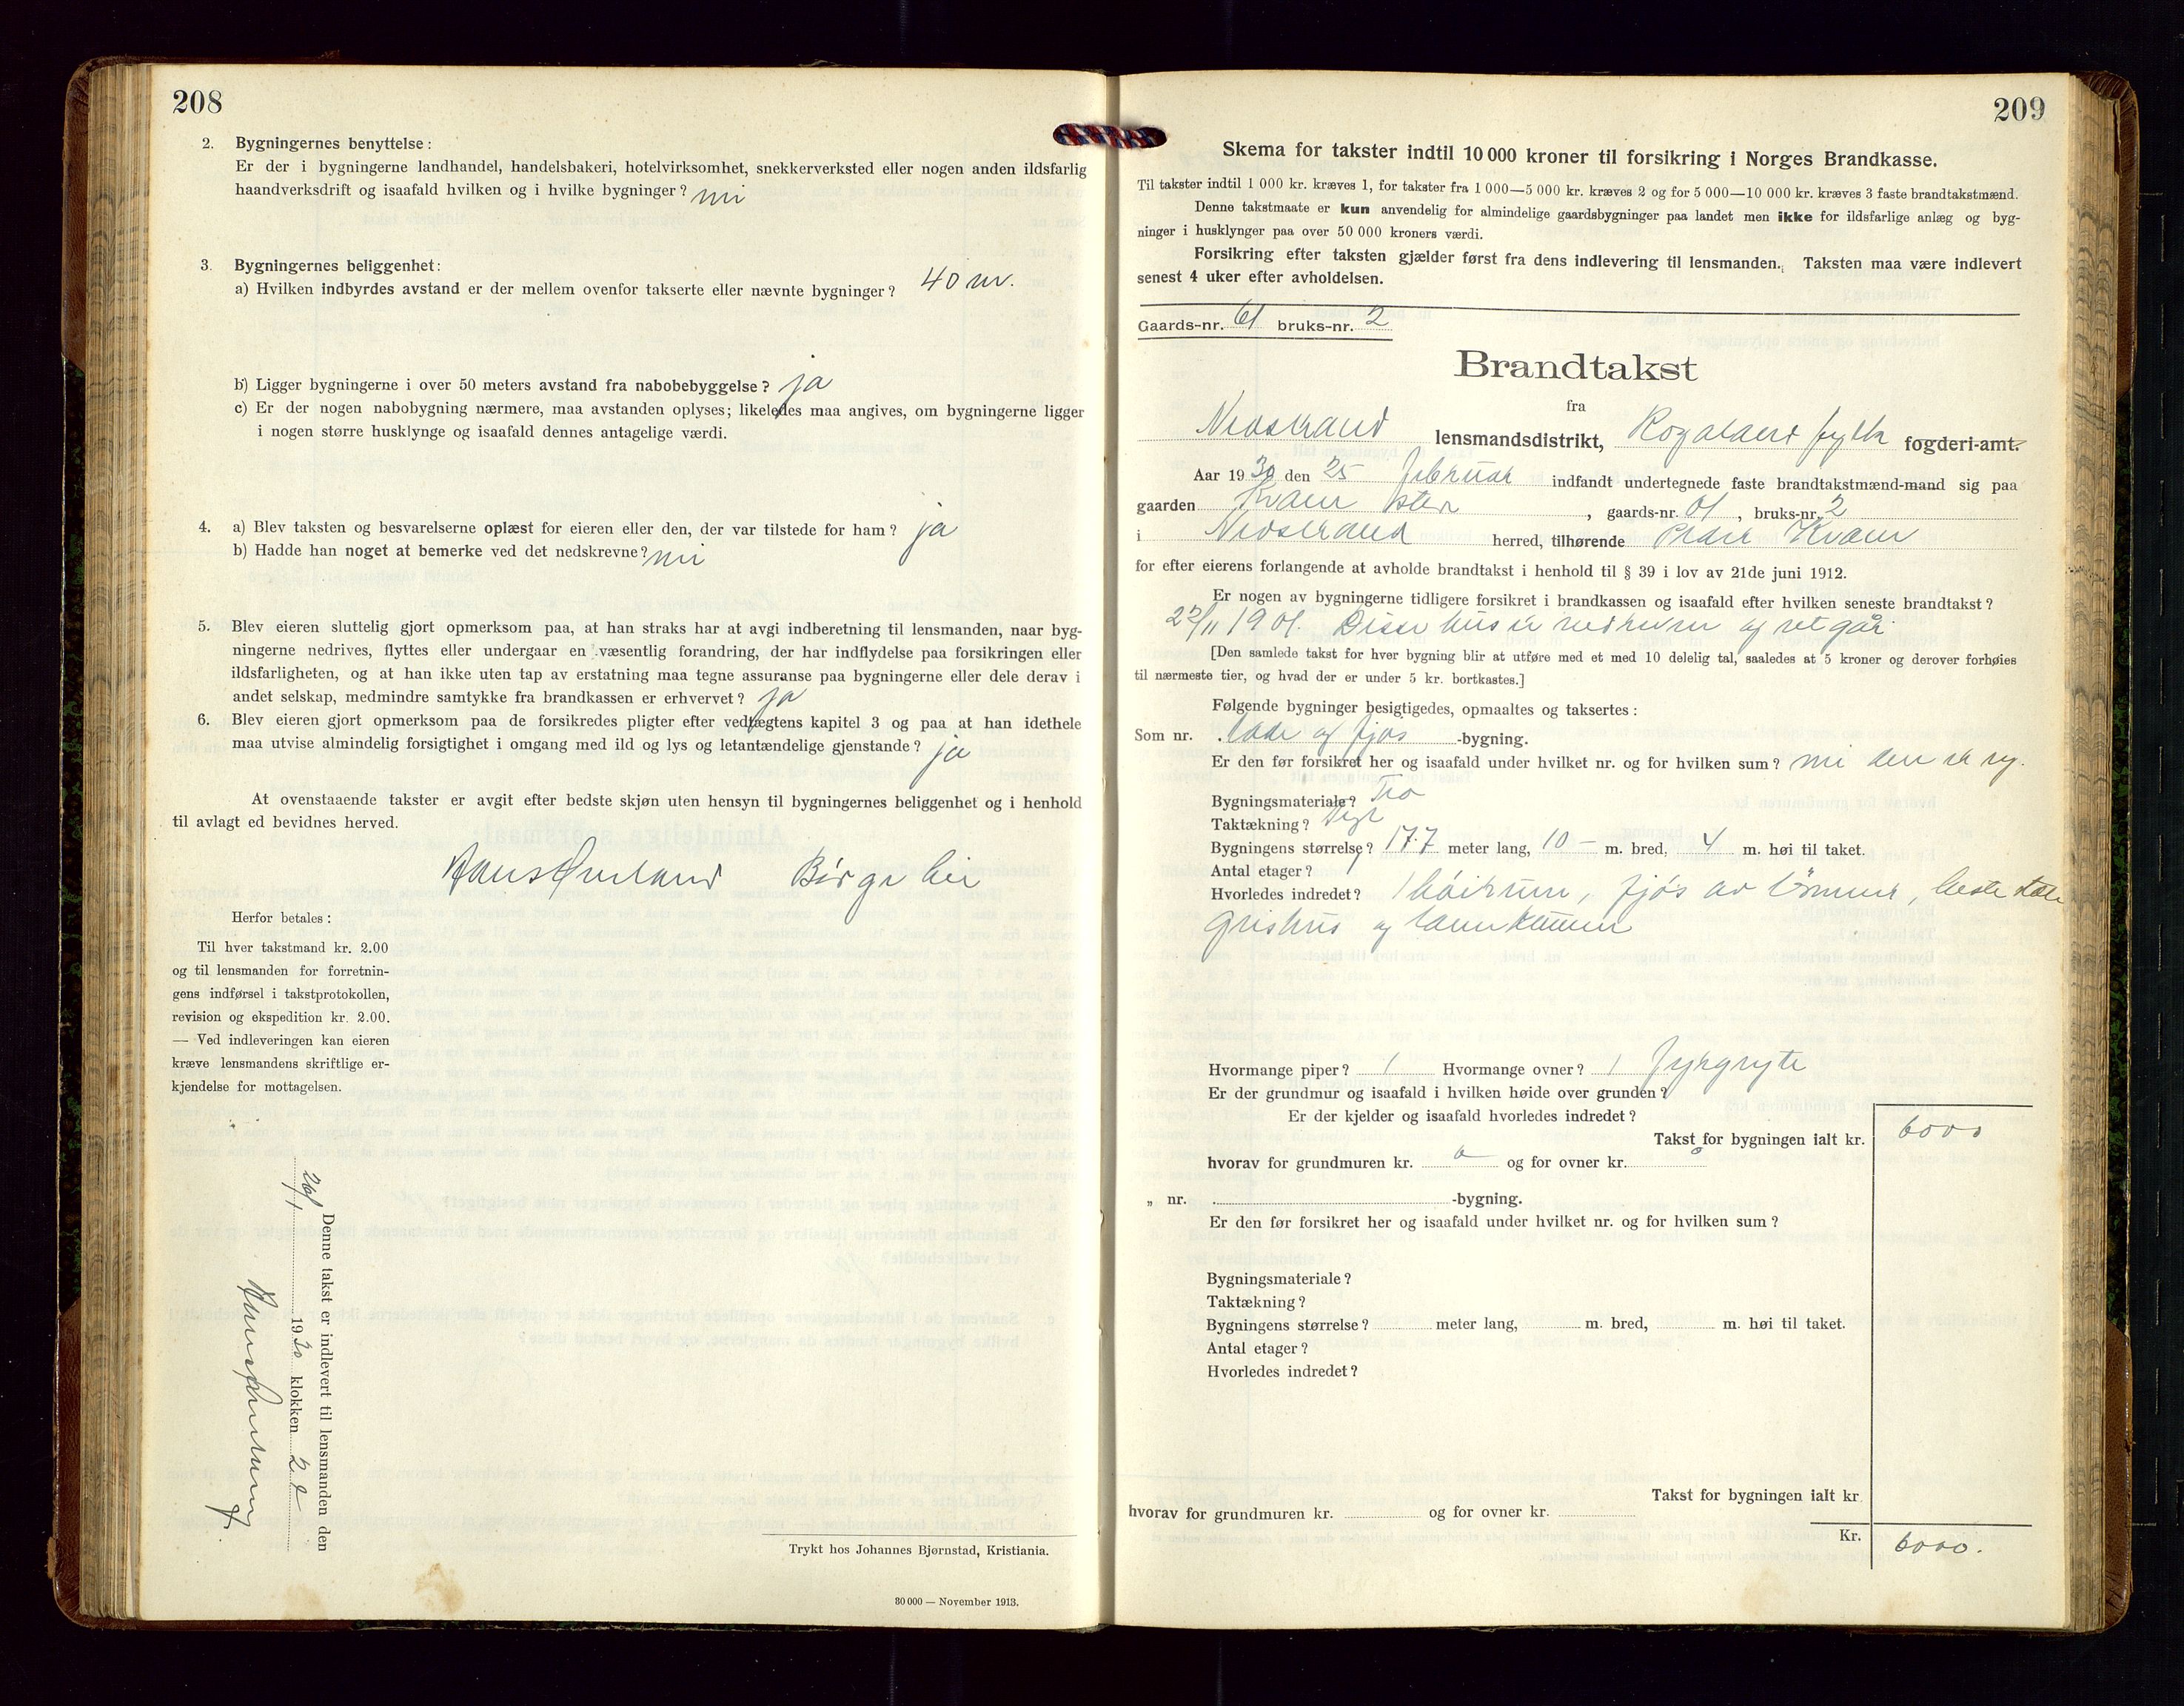 208
2. Bygningernes benyttelse:
Er der i bygningerne landhandel, handelsbakeri, hotelvirksomhet, snekkerverksted eller nogen anden ildsfarlig
haandverksdrift og isaafald hvilken og i hvilke bygninger? nei
3. Bygningernes beliggenhet:
a) Hvilken indbyrdes avstand er der mellem ovenfor takserte eller nævnte bygninger? 40 m.
b) Ligger bygningerne i over 50 meters avstand fra nabobebyggelse? ja
c) Er der nogen nabobygning nærmere, maa avstanden oplyses; likeledes maa angives, om bygningerne ligger
i nogen større husklynge og isaafald dennes antagelige værdi.
4. a) Blev taksten og besvarelserne oplæst for eieren eller den, der var tilstede for ham? ja
b) Hadde han noget at bemerke ved det nedskrevne? nei
5. Blev eieren sluttelig gjort opmerksom paa, at han straks har at avgi indberetning til lensmanden, naar byg-
ningerne nedrives, flyttes eller undergaar en væsentlig forandring, der har indflydelse paa forsikringen eller
ildsfarligheten, og at han ikke uten tap av erstatning maa tegne assuranse paa bygningerne eller dele derav i
andet selskap, medmindre samtykke fra brandkassen er erhvervet? ja
6. Blev eieren gjort opmerksom paa de forsikredes pligter efter vedtægtens kapitel 3 og paa at han idethele
maa utvise almindelig forsigtighet i omgang med ild og lys og letantændelige gjenstande? ja
At ovenstaaende takster er avgit efter bedste skjøn uten hensyn til bygningernes beliggenhet og i henhold
til avlagt ed bevidnes herved.
Hans Børge Lie
Herfor betales:
Til hver takstmand kr. 2.00
og til lensmanden for forretnin-
gens indførsel i takstprotokollen,
revision og ekspedition kr. 2.00.
— Ved indleveringen kan eieren
kræve lensmandens skriftlige er-
kjendelse for mottagelsen.
Denne takst er indlevert til lensmanden den
1930 klokken 2
Trykt hos Johannes Bjørnstad, Kristiania.
30 000 — November 1913.
209
Skema for takster indtil 10 000 kroner til forsikring i Norges Brandkasse.
Til takster indtil 1 000 kr. kræves 1, for takster fra 1 000—5 000 kr. kræves 2 og for 5 000—10 000 kr. kræves 3 faste brandtakstmænd.
Denne takstmaate er kun anvendelig for almindelige gaardsbygninger paa landet men ikke for ildsfarlige anlæg og byg-
ninger i husklynger paa over 50 000 kroners værdi.
Forsikring efter taksten gjælder først fra dens indlevering til lensmanden. Taksten maa være indlevert
senest 4 uker efter avholdelsen.
Gaards-nr. 61 bruks-nr. 2
Brandtakst
fra
Nedstrand lensmandsdistrikt, Rogaland fylke fogderi-amt.
Aar 1930 den 25 februar indfandt undertegnede faste brandtakstmænd-mand sig paa
gaarden Kvam , gaards-nr. 61, bruks-nr. 2
i Nedstrand herred, tilhørende Peder Kvam
for efter eierens forlangende at avholde brandtakst i henhold til § 39 i lov av 21de juni 1912.
Er nogen av bygningerne tidligere forsikret i brandkassen og isaafald efter hvilken seneste brandtakst?
1901. Disse hus er nedrevne og utgår
[Den samlede takst for hver bygning blir at utføre med et med 10 delelig tal, saaledes at 5 kroner og derover forhøies
til nærmeste tier, og hvad der er under 5 kr. bortkastes.]
Følgende bygninger besigtigedes, opmaaltes og taksertes:
Som nr. Lade og fjøs -bygning.
Er den før forsikret her og isaafald under hvilket nr. og for hvilken sum? nei den er ny.
Bygningsmateriale? Tre
Taktækning? Tegl
Bygningens størrelse? 17.7 meter lang, 10 — m. bred, 4 m. høi til taket.
Antal etager?
Hvorledes indredet? 1 høirum, fjøs av tømmer, hestestald
grishus og
Hvormange piper? 1 Hvormange ovner? 1 fyrgryte
Er der grundmur og isaafald i hvilken høide over grunden?
Er der kjelder og isaafald hvorledes indredet?
Takst for bygningen ialt kr. 6000
hvorav for grundmuren kr. 0 og for ovner kr. 0
„ nr. -bygning.
Er den før forsikret her og isaafald under hvilket nr. og for hvilken sum?
Bygningsmateriale?
Taktækning?
Bygningens størrelse? meter lang, m. bred, m. høi til taket.
Antal etager?
Hvorledes indredet?
Takst for bygningen ialt kr
hvorav for grundmuren kr. og for ovner kr.
Kr. 6000.